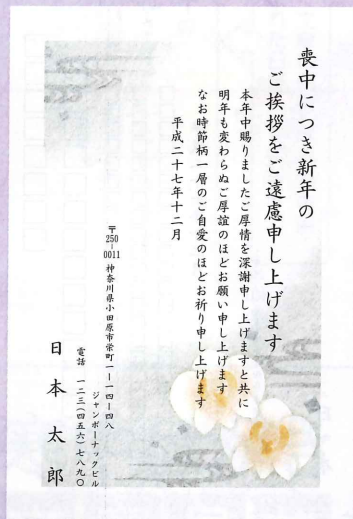 喪中につき新年の
ご挨拶をご遠慮申し上げます
本年中賜りましたご厚情を深謝申し上げますと共に
明年も変わらぬご厚誼のほどお願い申し上げます
なお時節柄一層のご自愛のほどお祈り申し上げます
平成二十七年十二月
〒250-0011 神奈川県小田原市栄町一ー一四ー四八
ジャンボーナックビル
電話 一二三(四五六)七八九〇
日本太郎